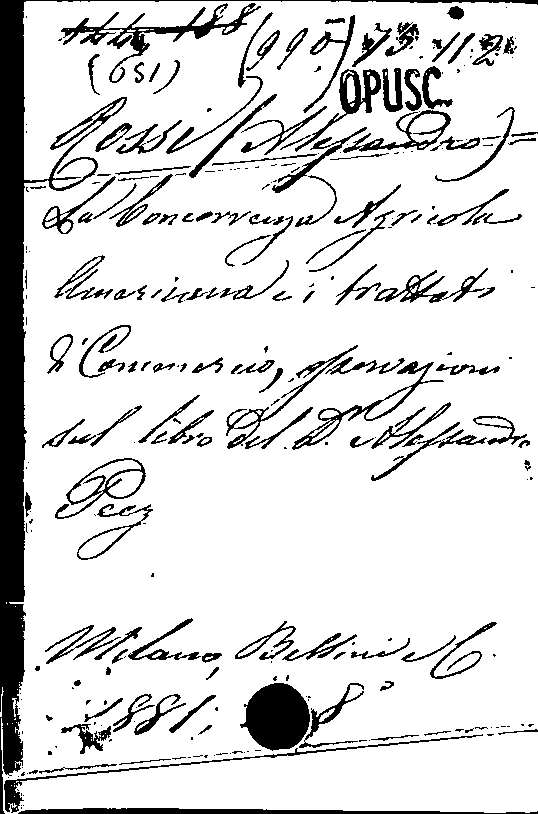 188
(651) (990) 73.11.2
OPUSC.
Rossi (Alessandro)
La Concorrenza Agricola
Americana e i trattati
di Commercio, osservazioni
sul libro del D.r Alessandro
Peez
Milano, Bettini e C.
1881; 8°